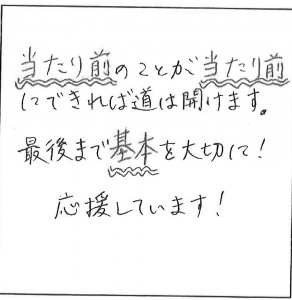 当たり前のことが当たり前
にできれば道は開けます。
最後まで基本を大切に！
応援しています！